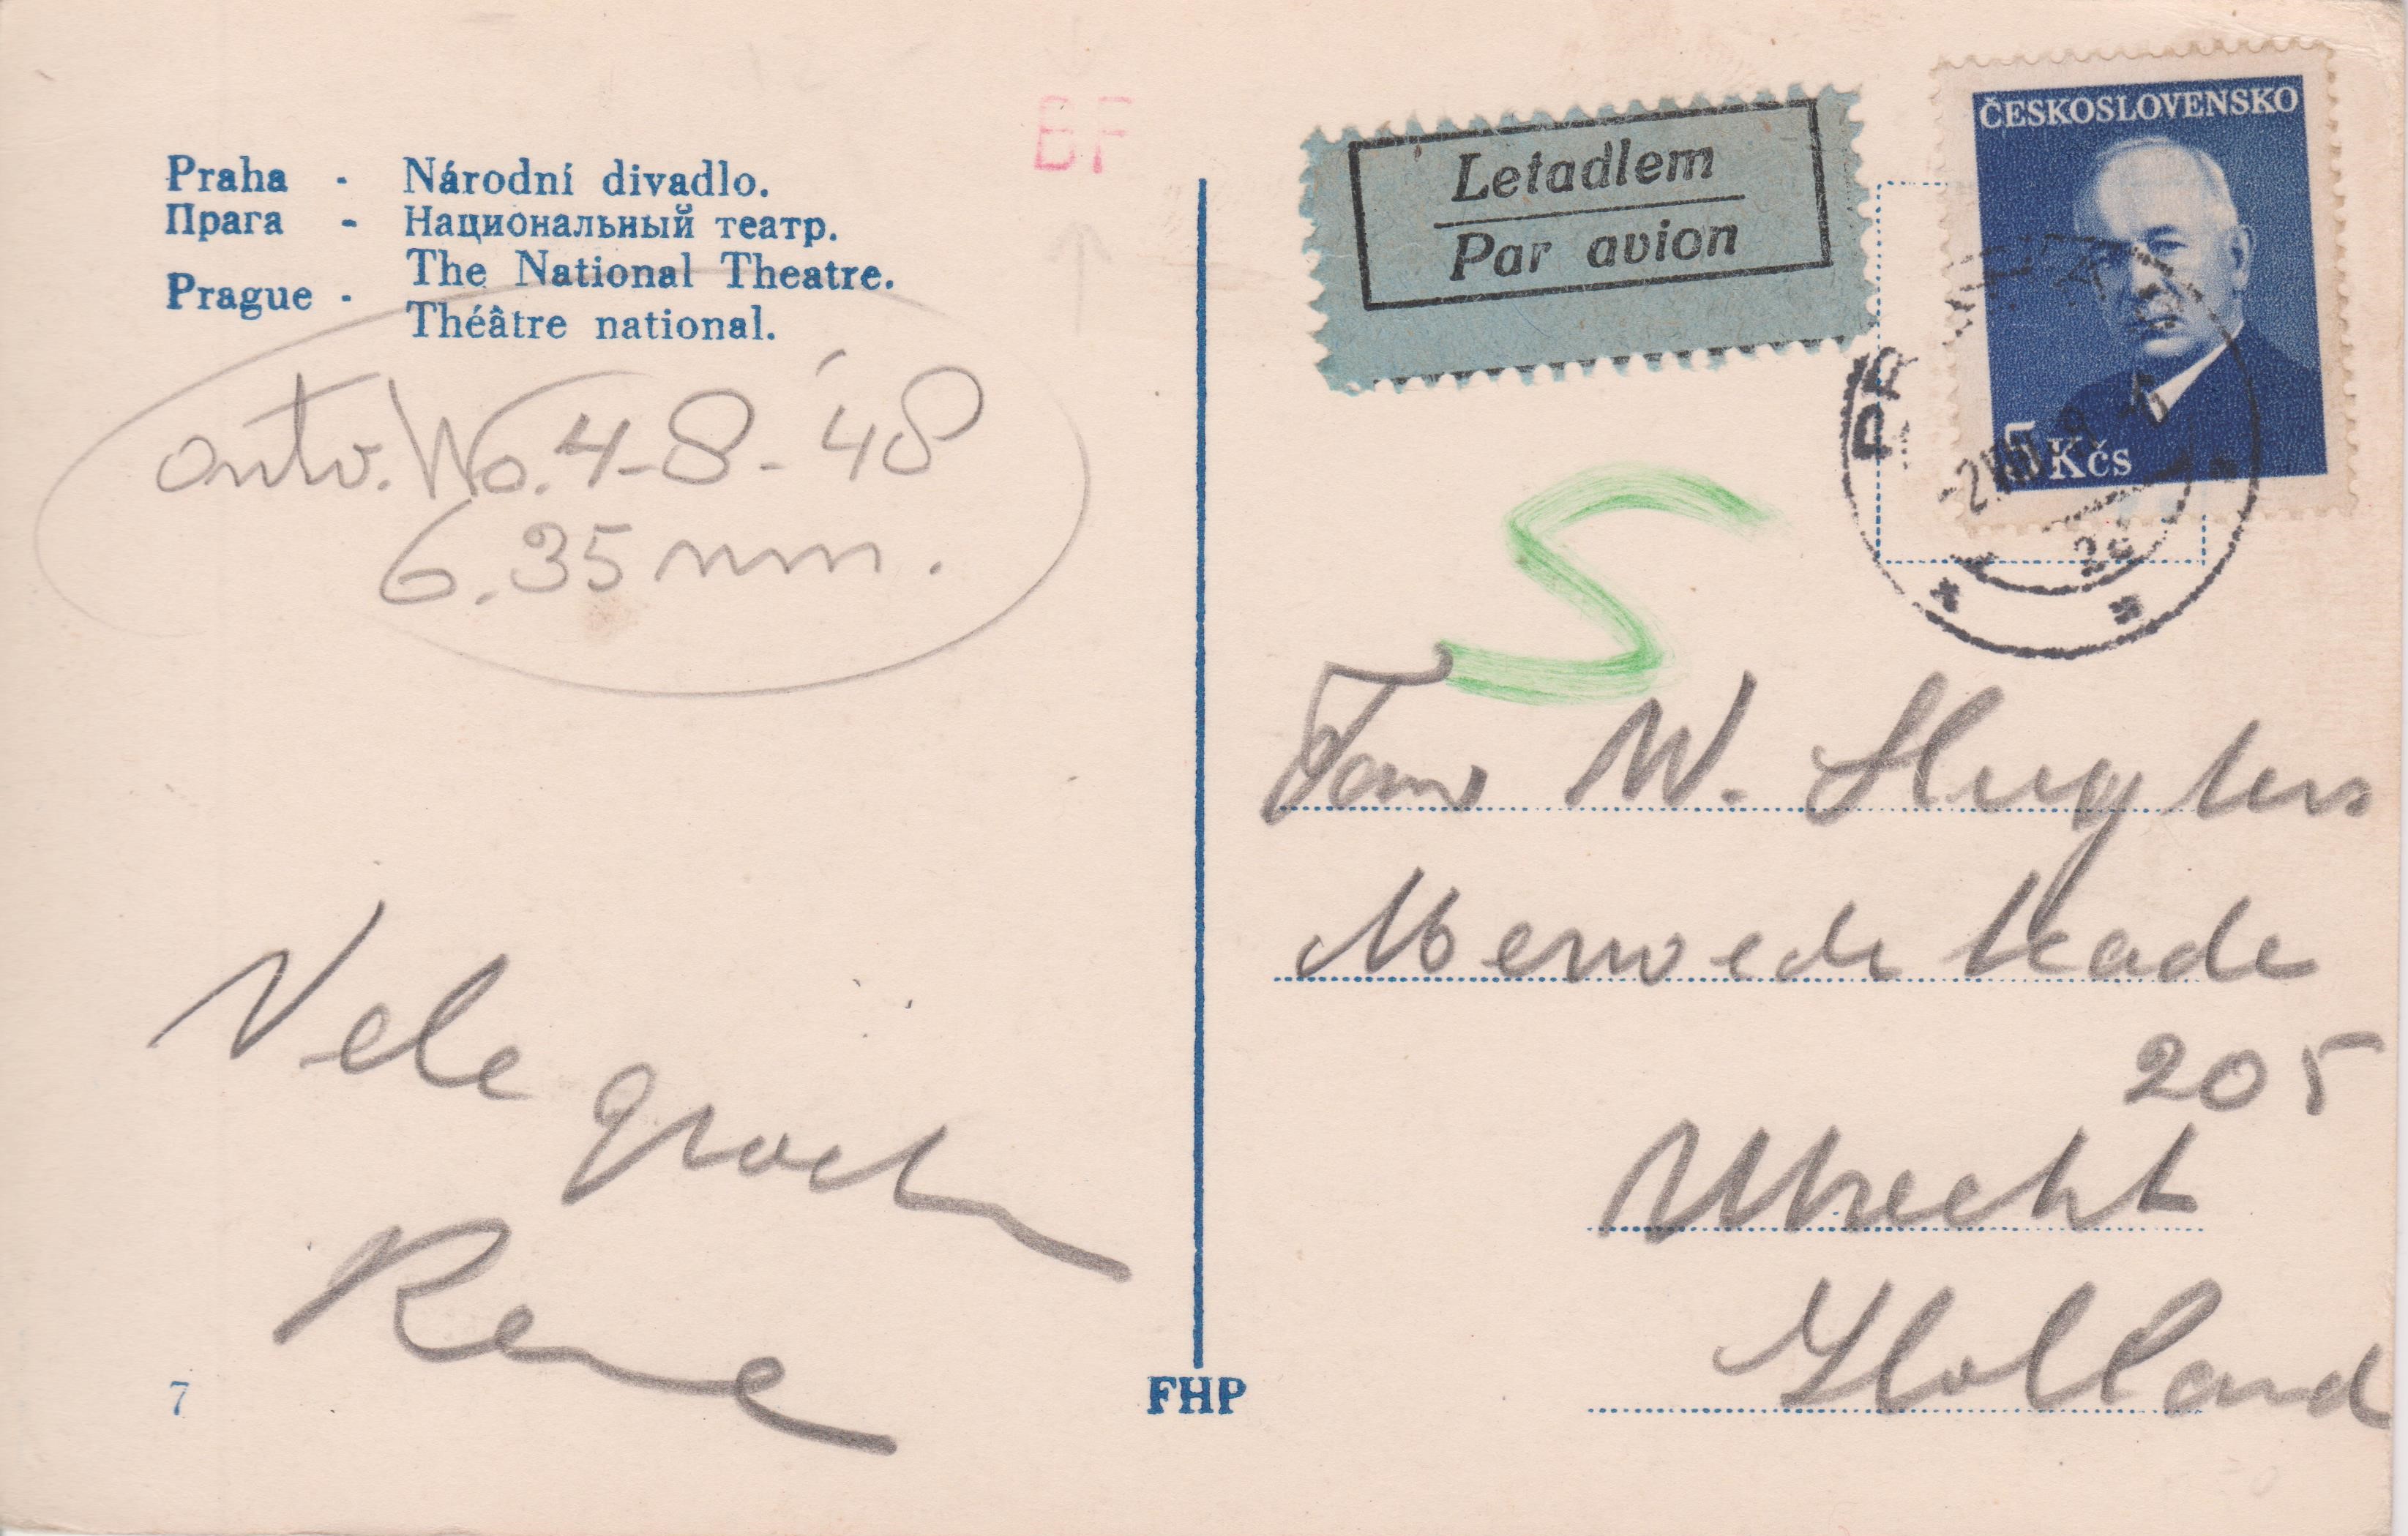 Praha - Národní divadlo.
Прага - Национальный театр.
Prague - The National Theatre.
Théâtre national.
BF
Letadlem
Par avion
ČESKOSLOVENSKO
5 Kčs
ontv. Wo. 4-8-'48
6.35 nm.
S
Fam W.
Merwedekade
205
Utrecht
Holland
Vele groeten
Rene
7
FHP